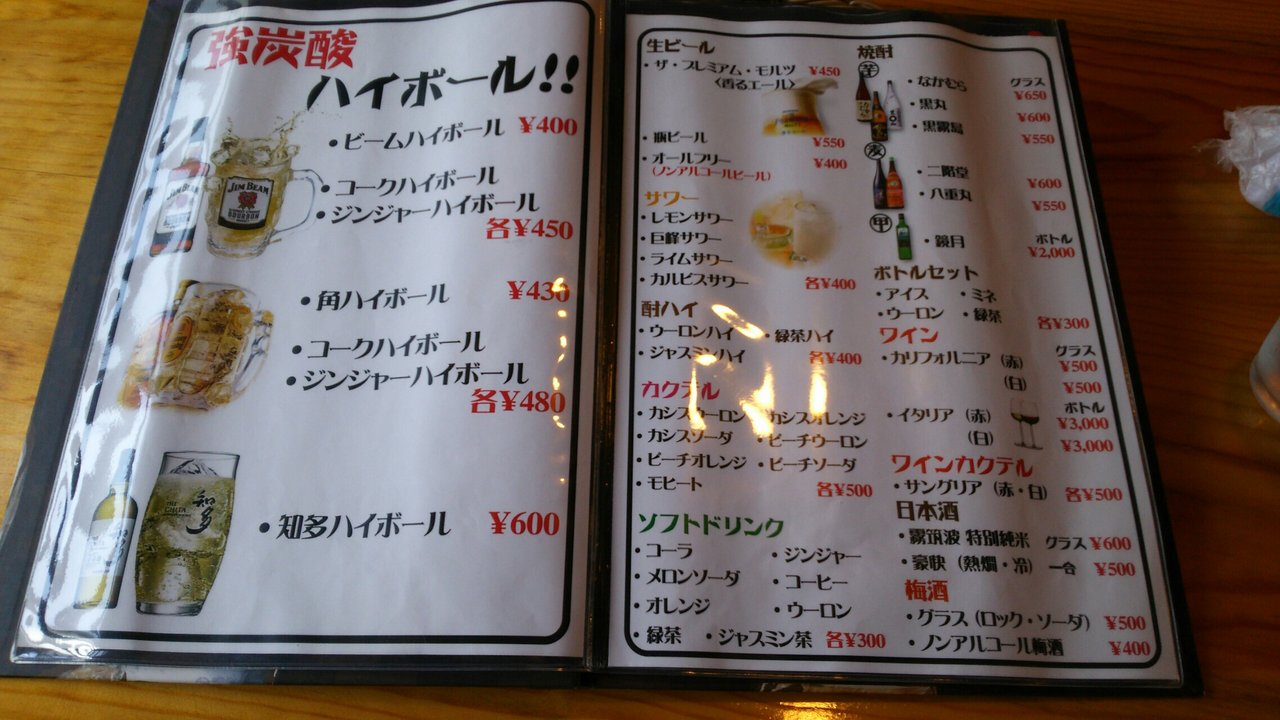 強炭酸
ハイボール!!
・ビームハイボール ¥400
・コークハイボール
・ジンジャーハイボール
各¥450
・角ハイボール ¥430
・コークハイボール
・ジンジャーハイボール
各¥480
・知多ハイボール ¥600
JIM BEAM
BOURBON
知多
生ビール
・ザ・プレミアム・モルツ ¥450
〈香るエール〉
・瓶ビール ¥550
・オールフリー ¥400
(ノンアルコールビール)
サワー
・レモンサワー
・巨峰サワー
・ライムサワー
・カルピスサワー 各¥400
酎ハイ
・ウーロンハイ ・緑茶ハイ
・ジャスミンハイ 各¥400
カクテル
・カシスウーロン ・カシスオレンジ
・カシスソーダ ・ピーチウーロン
・ピーチオレンジ ・ピーチソーダ
・モヒート 各¥500
ソフトドリンク
・コーラ ・ジンジャー
・メロンソーダ ・コーヒー
・オレンジ ・ウーロン
・緑茶 ・ジャスミン茶 各¥300
焼酎
芋
・なかむら グラス ¥650
・黒丸 ¥600
・黒霧島 ¥550
麦
・二階堂 ¥600
・八重丸 ¥550
甲
・鏡月 ボトル ¥2,000
ボトルセット
・アイス ・ミネ
・ウーロン ・緑茶 各¥300
ワイン
・カリフォルニア (赤) グラス ¥500
(白) ¥500
・イタリア (赤) ボトル ¥3,000
(白) ¥3,000
ワインカクテル
・サングリア (赤・白) 各¥500
日本酒
・霧筑波 特別純米 グラス ¥600
・豪快 (熱燗・冷) 一合 ¥500
梅酒
・グラス (ロック・ソーダ) ¥500
・ノンアルコール梅酒 ¥400